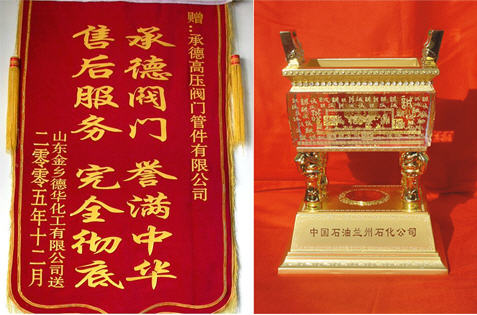 赠:承德高压阀门管件有限公司
承德阀门 誉满中华
售后服务 完全彻底
山东金乡德华化工有限公司送
二零零五年十二月
誠
中国石油兰州石化公司